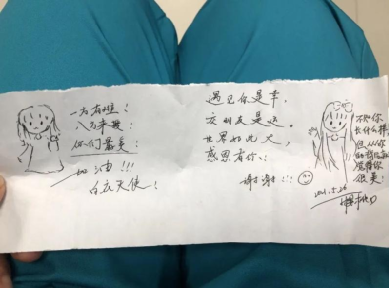 一方有难！
八方来援！
你们最美！
加油!!!
白衣天使！
遇见你是幸，
交到友是运。
世界如此大，
感恩有你！
谢谢!!!
不知你
长什么样
但从你
觉得你
很美！
2021.5.26